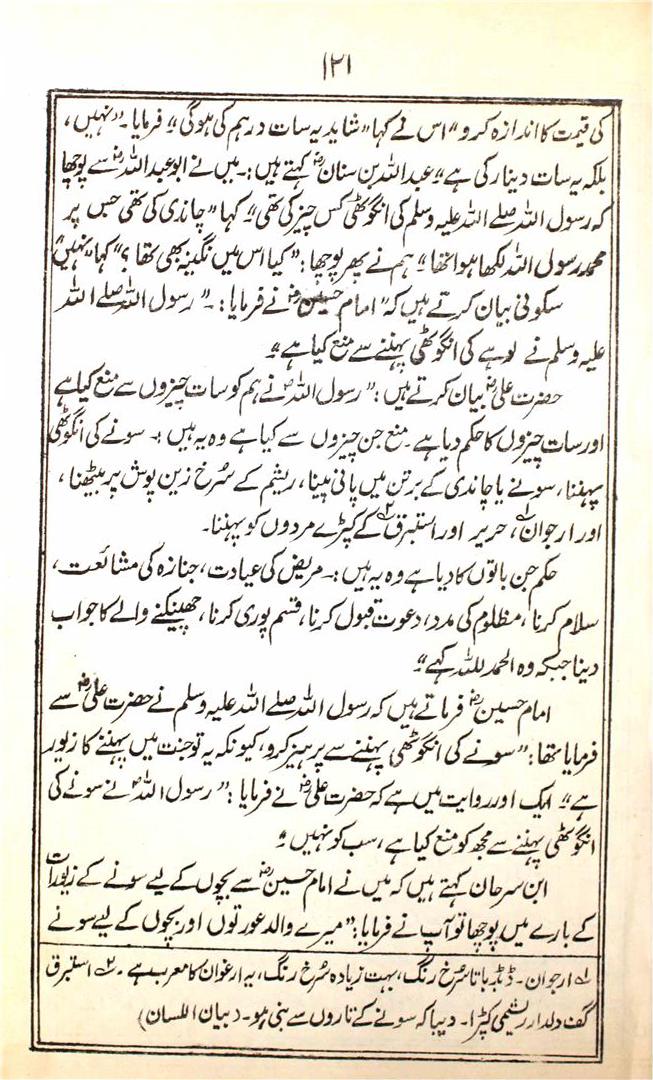 ۱۲۱
کی قیمت کا اندازہ کرو" اس نے کہا "شاید یہ سات درہم کی ہوگی"؛ فرمایا۔ "نہیں،
بلکہ یہ سات دینار کی ہے"؛ عبداللہ بن سنانؓ کہتے ہیں:۔ میں نے ابو عبداللہؓ سے پوچھا
کہ رسول اللہ صلے اللہ علیہ وسلم کی انگوٹھی کس چیز کی تھی؟" کہا "چاندی کی تھی جس پر
محمد رسول اللہ لکھا ہوا تھا"؛ ہم نے پھر پوچھا: "کیا اس میں نگینہ بھی تھا؟" کہا "نہیں"
سکونی بیان کرتے ہیں کہ "امام حسینؓ نے فرمایا:۔ "رسول اللہ صلے اللہ
علیہ وسلم نے لوہے کی انگوٹھی پہننے سے منع کیا ہے"۔
حضرت علیؓ بیان کرتے ہیں: "رسول اللہؐ نے ہم کو سات چیزوں سے منع کیا ہے
اور سات چیزوں کا حکم دیا ہے۔ منع جن چیزوں سے کیا ہے وہ یہ ہیں:۔ سونے کی انگوٹھی
پہننا، سونے یا چاندی کے برتن میں پانی پینا، ریشم کے سُرخ زین پوش پر بیٹھنا،
اور ارجوان۱؎، حریر اور استبرق۲؎ کے کپڑے مردوں کو پہننا۔
حکم جن باتوں کا دیا ہے وہ یہ ہیں:۔ مریض کی عیادت، جنازہ کی مشائعت،
سلام کرنا، مظلوم کی مدد، دعوت قبول کرنا، قسم پوری کرنا، چھینکنے والے کا جواب
دینا جبکہ وہ الحمد للہ کہے"۔
امام حسینؓ فرماتے ہیں کہ رسول اللہ صلے اللہ علیہ وسلم نے حضرت علیؓ سے
فرمایا تھا: "سونے کی انگوٹھی پہننے سے پرہیز کرو، کیونکہ یہ تو جنت میں پہننے کا زیور
ہے"؛ ایک اور روایت میں ہے کہ حضرت علیؓ نے فرمایا: "رسول اللہؐ نے سونے کی
انگوٹھی پہننے سے مجھ کو منع کیا ہے، سب کو نہیں"۔
ابن سرحان کہتے ہیں کہ میں نے امام حسینؓ سے بچوں کے لیے سونے کے زیورات
کے بارے میں پوچھا تو آپ نے فرمایا: "میرے والد عورتوں اور بچوں کے لیے سونے
۱؎ ارجوان۔ ڈبڈباتا سُرخ رنگ، بہت زیادہ سُرخ رنگ، یہ ارغوان کا معرب ہے۔ ۲؎ استبرق
گف دلدار ریشمی کپڑا۔ دیبا کہ سونے کے تاروں سے بنی ہو۔ (بیان اللسان)